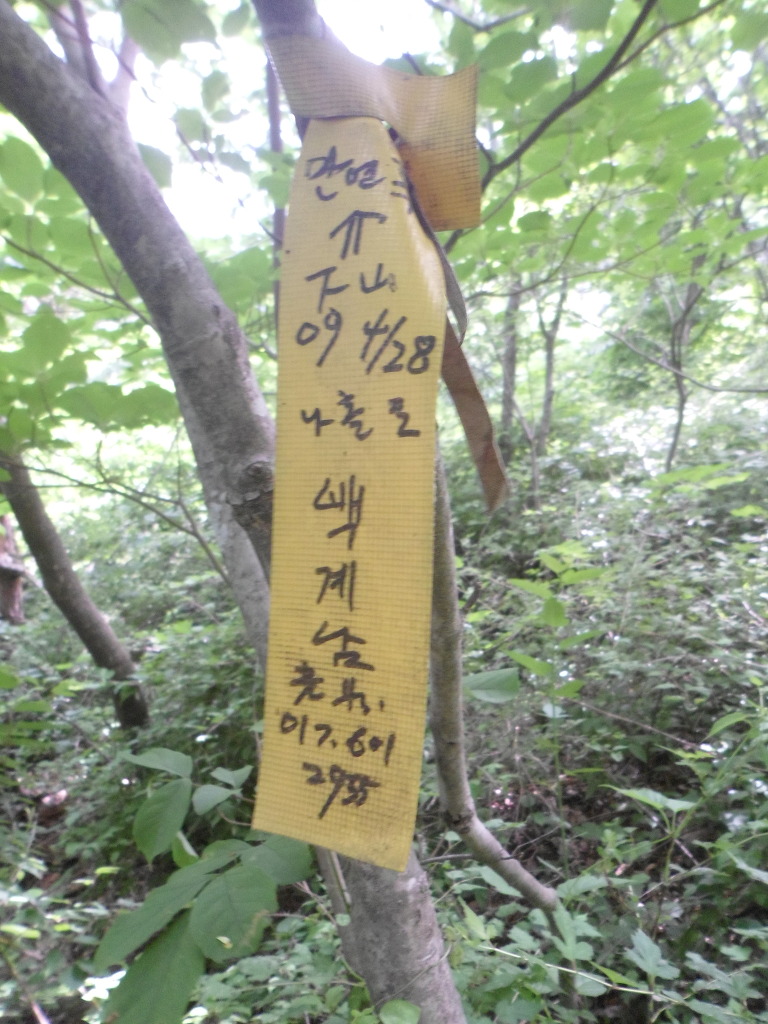 간연
下山
09 4/28
나홀로
백
계
남
017.601
2955